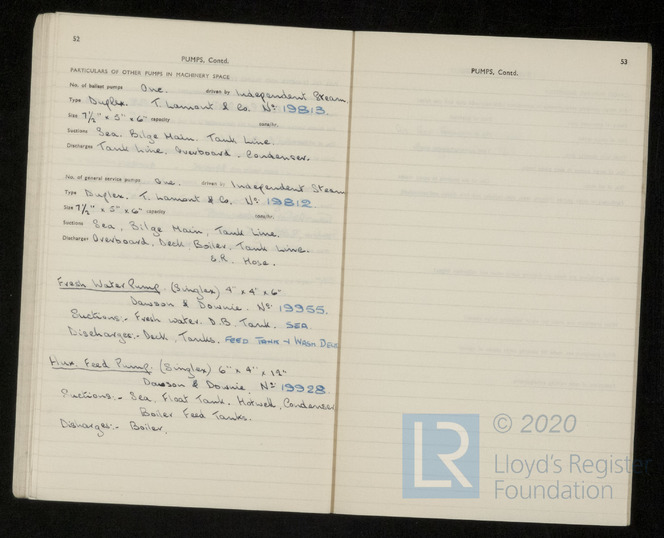 52
PUMPS, Contd.
PARTICULARS OF OTHER PUMPS IN MACHINERY SPACE
No. of ballast pumps One. driven by Independent Steam.
Type Duplex. T. Lamont & Co. No. 19813.
Size 7½" x 5" x 6" capacity tons/hr.
Suctions Sea, Bilge Main, Tank Line.
Discharges Tank Line, Overboard, Condenser.
No. of general service pumps One. driven by Independent Steam
Type Duplex. T. Lamont & Co. No. 19812
Size 7½" x 5" x 6" capacity tons/hr.
Suctions Sea, Bilge Main, Tank Line.
Discharges Overboard, Deck, Boiler, Tank Line.
E.R. Hose.
Fresh Water Pump. (Singlex) 4" x 4" x 6"
Dawson & Downie. No. 19955.
Suctions:- Fresh water. D.B. Tank. SEA.
Discharges:- Deck, Tanks. FEED TANK + WASH DECK
Aux. Feed Pump. (Singlex) 6" x 4" x 12"
Dawson & Downie. No. 19928.
Suctions:- Sea, Float Tank, Hotwell, Condenser
Boiler Feed Tanks.
Disharges:- Boiler.
53
PUMPS, Contd.
LR
© 2020
Lloyd's Register
Foundation